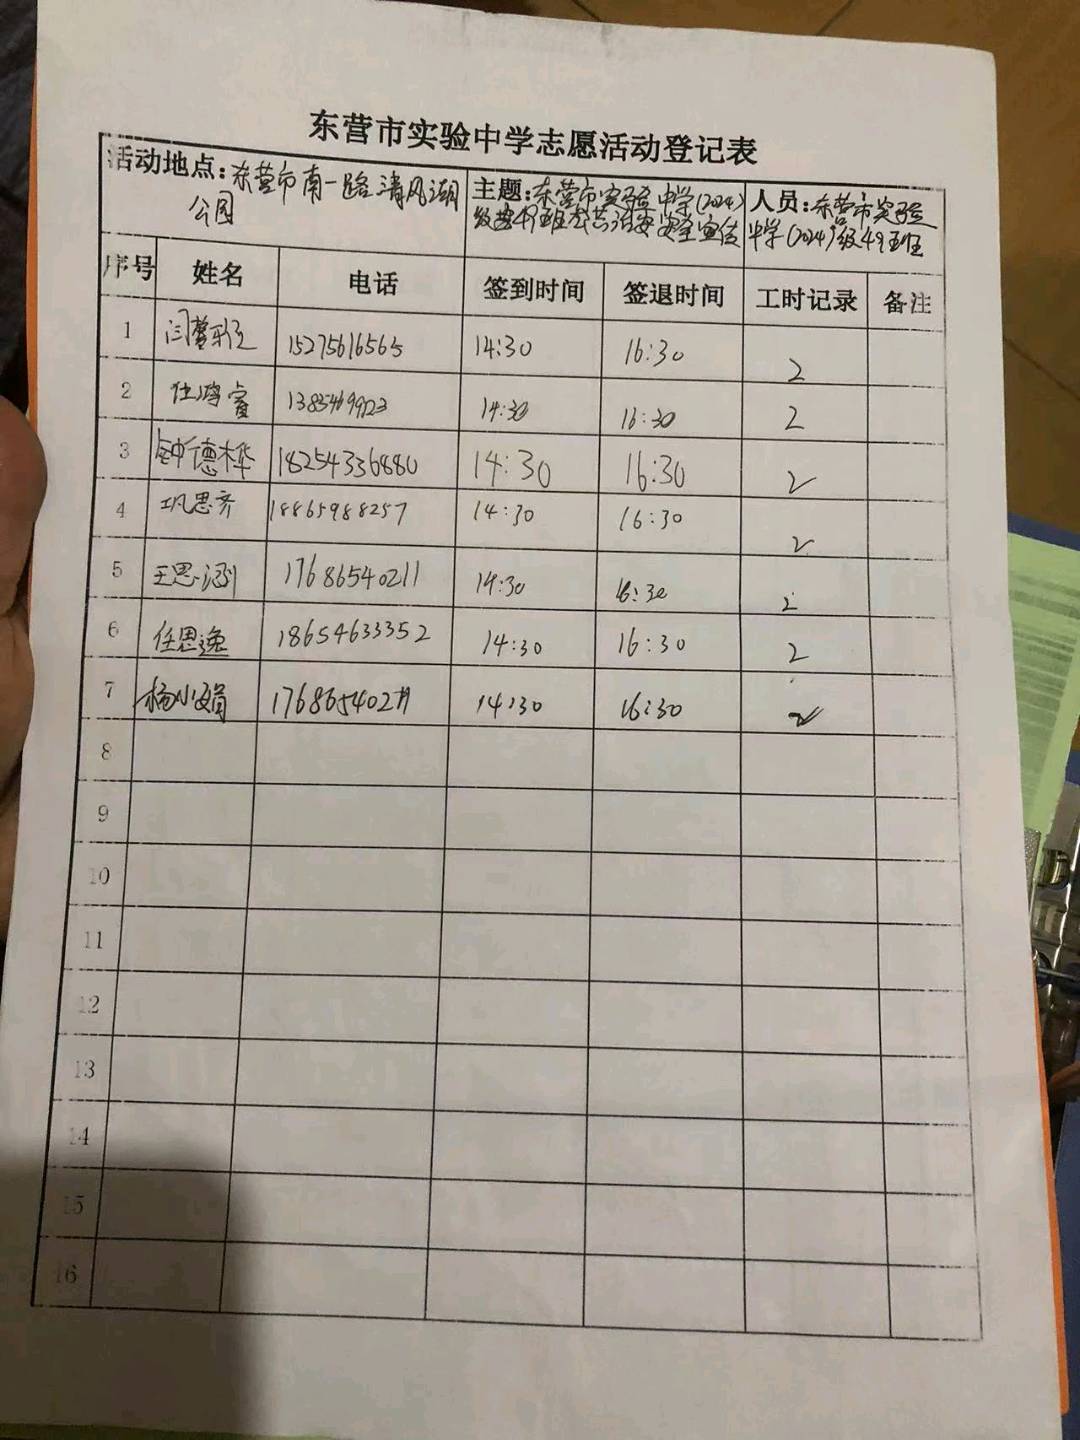 东营市实验中学志愿活动登记表
活动地点:东营市南一路清风湖
公园
主题:东营市实验中学(2024)
级49班公共治安安全宣传
人员:东营市实验
中学(2024)级49班
序号 姓名 电话 签到时间 签退时间 工时记录 备注
1 闫 15275616565 14:30 16:30 2
2 任鸿睿 14:30 16:30 2
3 钟德桦 18254336880 14:30 16:30 2
4 巩思齐 18865988257 14:30 16:30 2
5 王思涵 17686540211 14:30 16:30 2
6 任思逸 18654633352 14:30 16:30 2
7 杨小娟 14:30 16:30 2
8
9
10
11
12
13
14
15
16